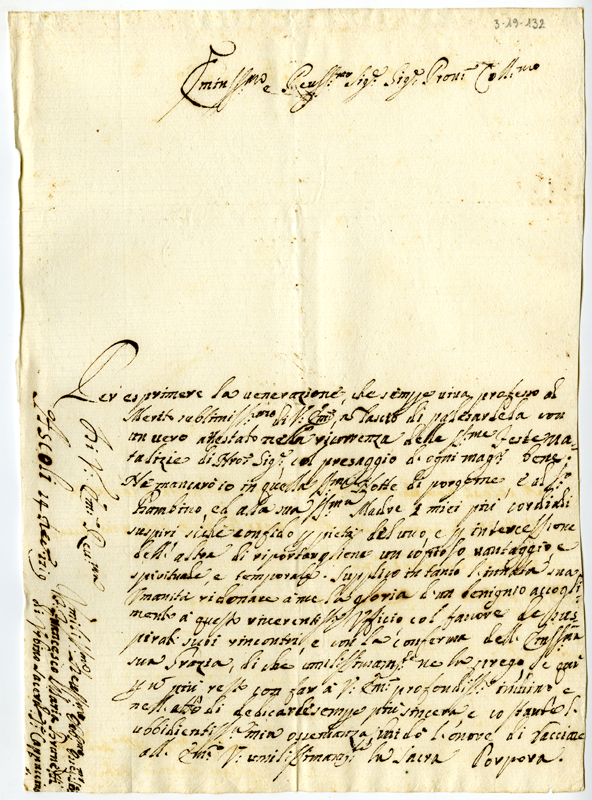 3-19-132
Eminss:mo e Reuss:mo Sig:r Sig:r Pron: Coll:mo
Per esprimere la uenerazione, che sempre uiua professo al
Merito sublimiss:mo di V: Em:a lascio di palesardela con
un uero attestato nella ricorrenza delle SS:me Feste Na-
talizie di Nro: Sig:e col presaggio di ogni mag: bene
Ne mancarò io in quella SS:ma Notte di porgerne e al S:o
Bambino, ed alla sua SS:ma Madre i miei più cordiali
suspiri sì che confido pietà del uno, e intercessione
dell'altra di riportargliene un copioso uantaggio e
spirituale e temporale. Supplico in tanto l'innata sua
Umanità ridonare a me la gloria d'un benigno accogli
mento a questo riuerente Vfficio col fauore de
suoi rincontri, e con la conferma dell' Emss:ma
sua Grazia, di che umilissimam:te ne la prego, e
più resto con far a V: Em:a profondiss:o inchino e
nell'atto di dedicarle sempre più sincera e costante l'
ubbidientiss:a mia osseruanza, unido l'onore di bacciare
all' Em:a V: umilissimam:te la Sacra Porpora.
Di V: Em:a Reu:ma
Ascoli 14 Dec:re
Francesco Maria
di Sacerdote Cappuccino